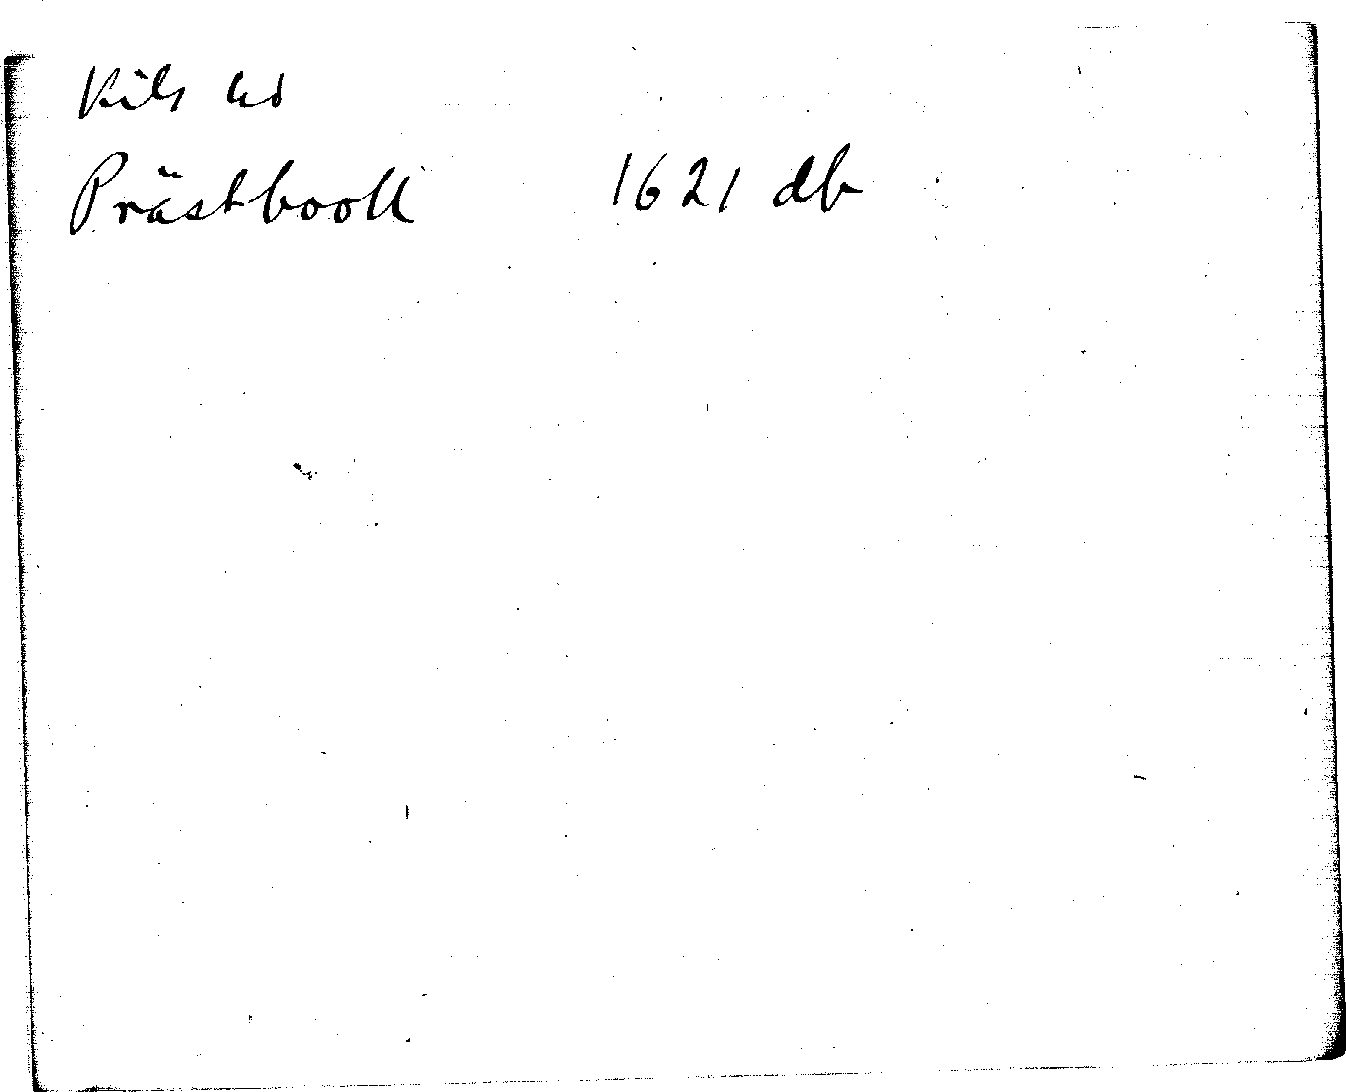 Kils hd
Prästbooll 1621 db